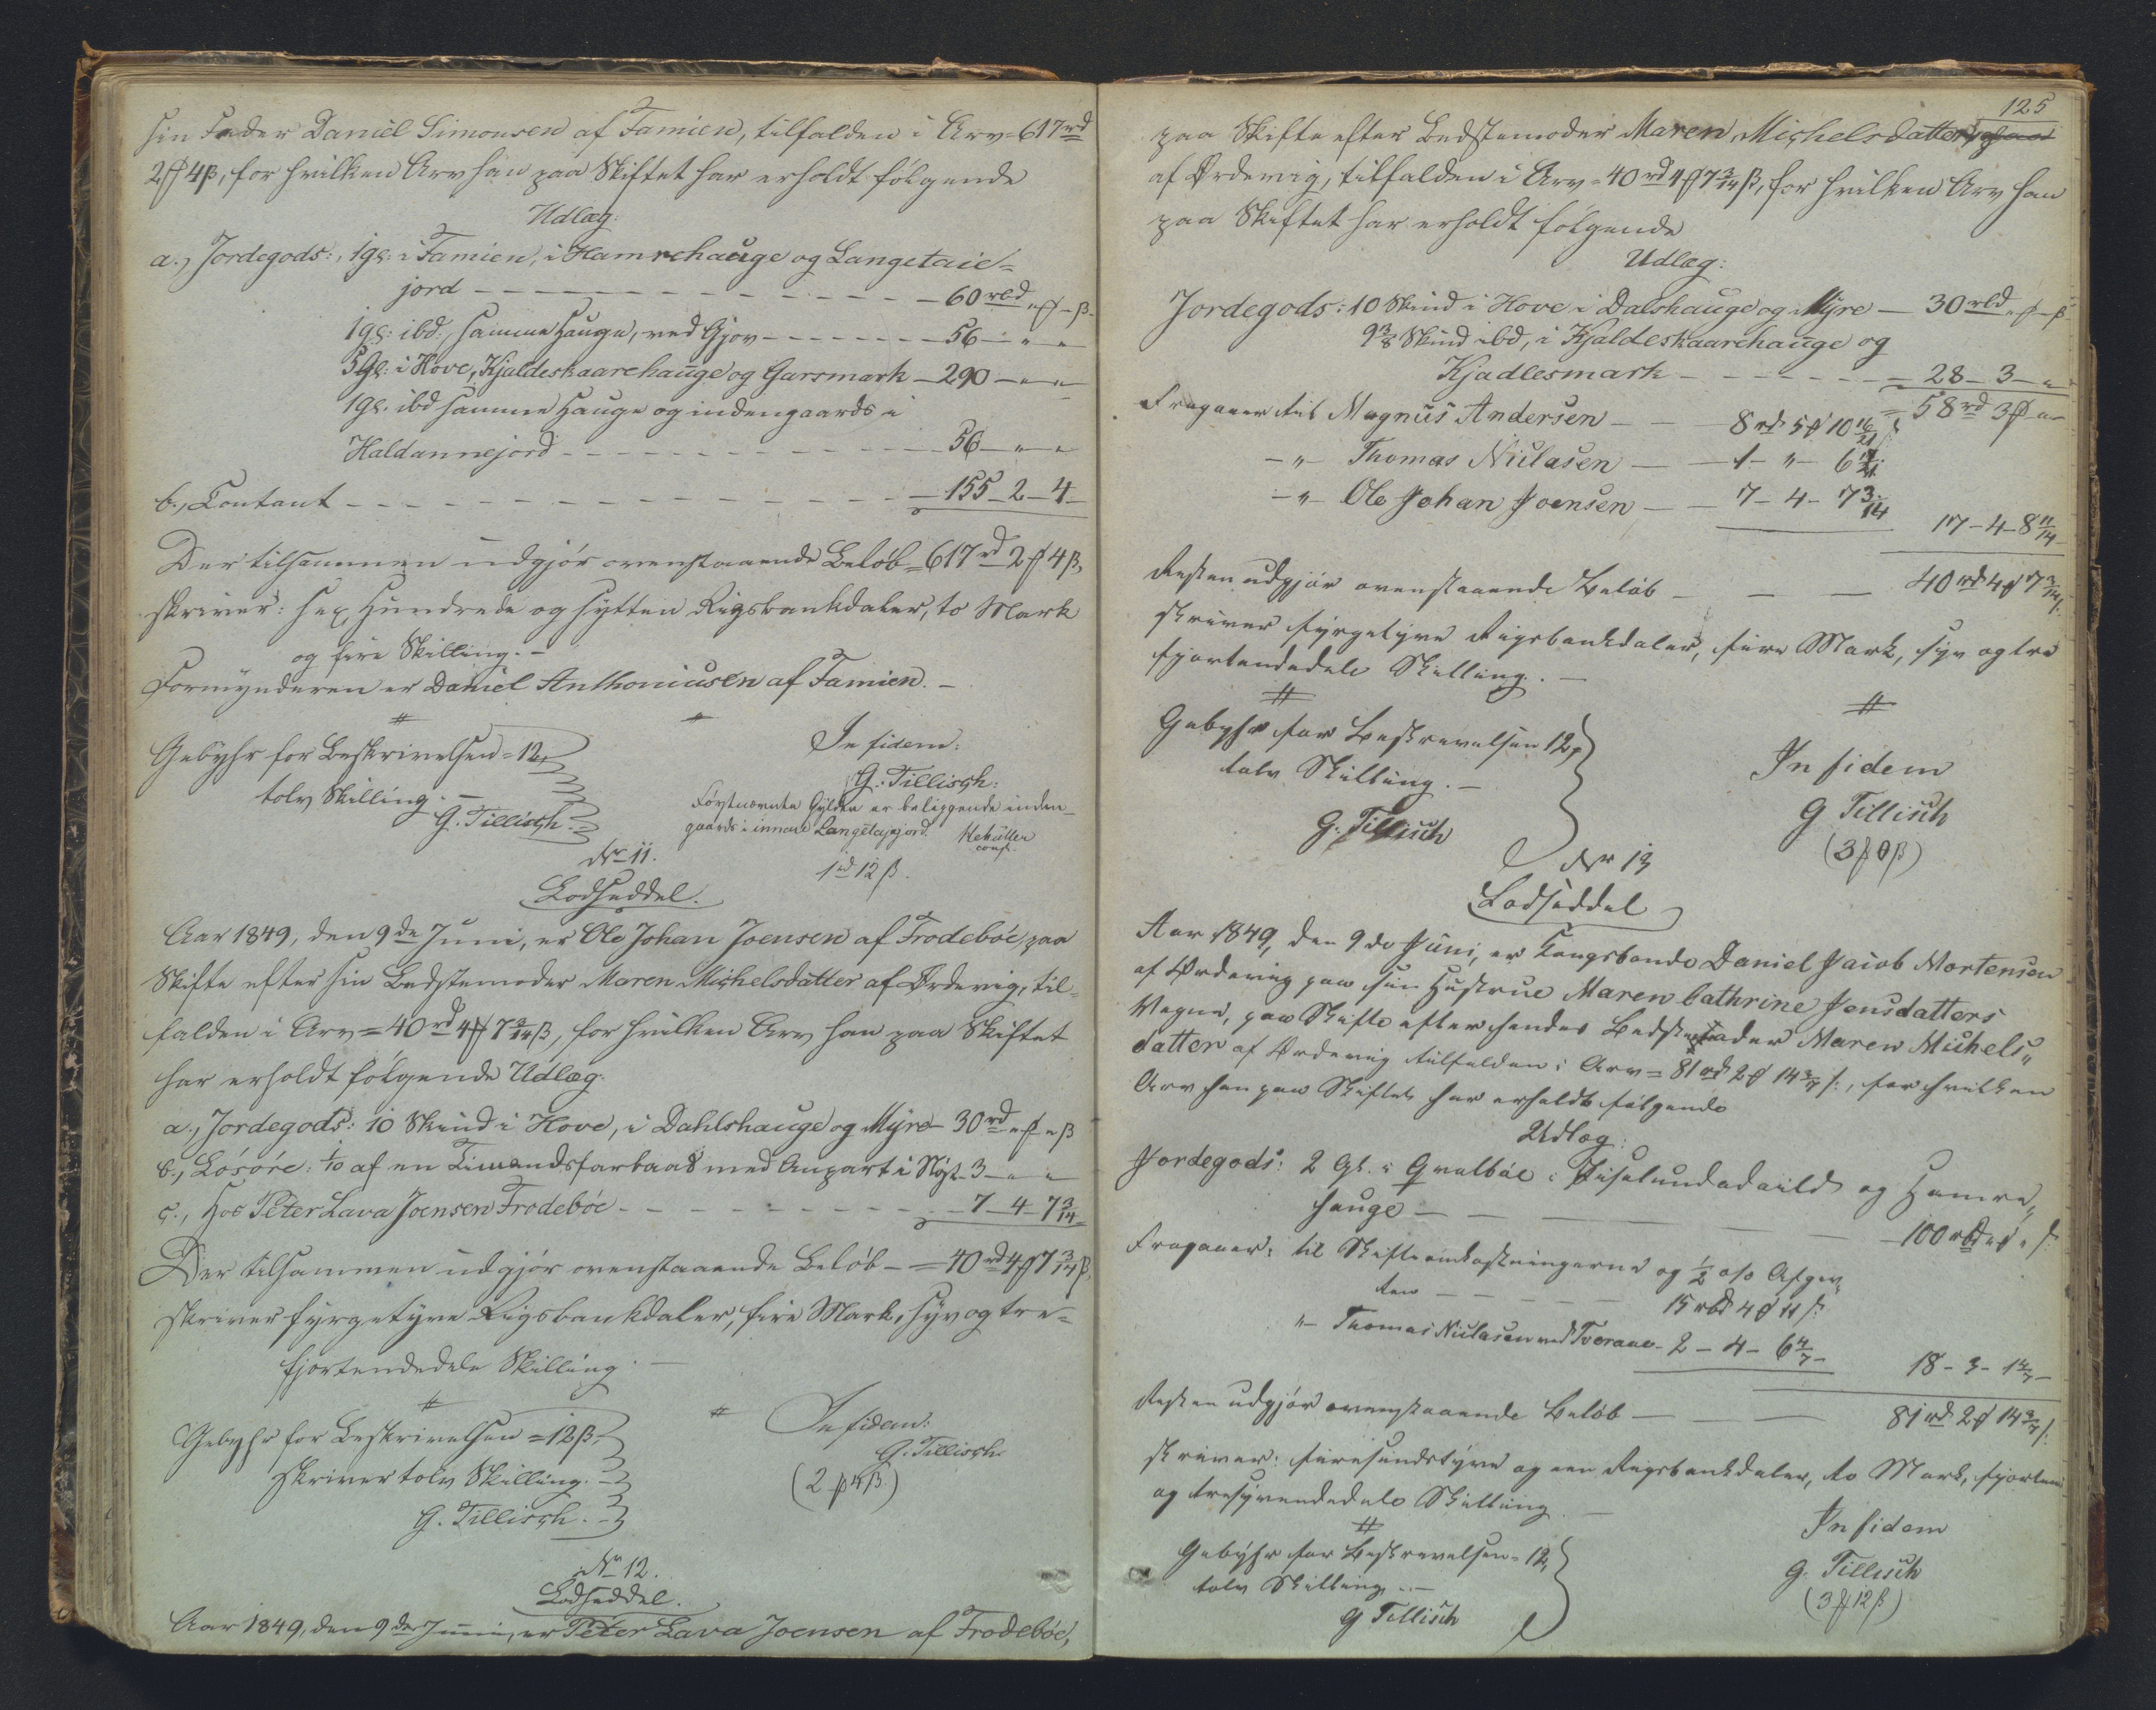 sin Fader Daniel Simonsen af Famien, tilfalden i Arv = 617 rd
2 ₰ 4 ß, for hvilken Arv han paa Skiftet har erholdt følgende
Udlæg:
a., Jordegods:, 1 gl: i Famien, i Hamrehauge og Langetaie=
jord - - - - - - - - - - - - - 60 rbd „ ₰ „ ß.
1 gl: ibd., samme Hauge, ved Gjov - - - - - - - 56 - „ „
5 gl: i Hove, Kjaldeskaarehauge og Garsmark - 290 - „ „
1 gl. ibd samme Hauge og indengaards i
Haldannejord - - - - - - - - - - - 56 - „ „
b., Contant - - - - - - - - - - - - - - 155 - 2 - 4 -
Der tilsammen udgjør ovenstaaende Beløb = 617 rd 2 ₰ 4 ß,
skriver: sex Hundrede og sytten Rigsbankdaler, to Mark
og fire Skilling. -
Formynderen er Daniel Anthoniusen af Famien. -
Gebyhr for Beskrivelsen = 12 ß
tolv Skilling. -
G. Tillisch.
In fidem:
G. Tillisch:
Førstnævnte Gylden er beliggende inden-
gaards i innare Langetajejord.
const.
1 rd 12 ß.
No 11.
Lodseddel.
Aar 1849, den 9de Juni, er Ole Johan Joensen af Frodebøe, paa
Skifte efter sin Bedstemoder Maren Michelsdatter af Ørdevig, til=
falden i Arv = 40 rd 4 ₰ 7 3/14 ß, for hvilken Arv han paa Skiftet
har erholdt følgende Udlæg.
a., Jordegods: 10 Skind i Hove, i Dahlshauge og Myre - 30 rd „ ₰ „ ß
b., Løsøre: 1/10 af en Timandsfarbaad med Anpart i Nøst - 3 - „ „
c., Hos Peter Lava Joensen Frodebøe - - - - - - - - - 7 - 4 - 7 3/14
Der tilsammen udgjør ovenstaaende Beløb - = 40 rd 4 ₰ 7 3/14 ß,
skriver fyrgetyve Rigsbankdaler, fire Mark, syv og tre=
fjortendedele Skilling. -
Gebyhr for Beskrivelsen = 12 ß,
skriver tolv Skilling. -
G. Tillisch. -
In fidem:
G. Tillisch
(2 ₰ 4 ß.)
No 12.
Lodseddel.
Aar 1849, den 9de Juni, er Peter Lava Joensen af Frodebøe,
125
paa Skifte efter Bedstemoder Maren Michelsdatter
af Ørdevig, tilfalden i Arv = 40 rd 4 ₰ 7 3/14 ß, for hvilken Arv han
paa Skiftet har erholdt følgende
Udlæg:
Jordegods: 10 Skind i Hove i Dalshauge og Myre - 30 rbd „ ₰ „ ß
9 3/8 Skind ibd, i Kjaldeskaarehauge og
Kjadlesmark - - - - - - = 28 - 3 - „
= 58 rd 3 ₰ „ -
Fragaaer til Magnus Andersen - - - 8 rd 5 ₰ 10 16/21 ß.
- „ - Thomas Niclasen - - 1 - „ - 6
- „ - Ole Johan Joensen - - 7 - 4 - 7 3/14
17 - 4 - 8 11/14
Resten udgjør ovenstaaende Beløb - - - 40 rd 4 ₰ 7 3/14 ß.
skriver fyrgetyve Rigsbankdaler, fire Mark, syv og tre
fjortendedele Skilling. -
Gebyhr for Beskrevelsen 12 ß
tolv Skilling. -
G. Tillisch
In fidem
G Tillisch
(3 ₰ 0 ß)
No 13
Lodseddel
Aar 1849, den 9de Juni, er Kongsbonde Daniel Jacob Mortensen
af Ørdevig paa sin Hustrue Maren Cathrine Jensdatters
Vegne, paa Skifte efter hendes Bedstemoder Maren Michels„
datter af Ørdevig tilfalden i Arv = 81 rd 2 ₰ 14 3/7 ß., for hvilken
Arv han paa Skiftet har erholdt følgende
Udlæg:
Jordegods: 2 Gl. i Qvalbøe i og Hamre„
hauge - - - - - - 100 rbd „ ₰ „ ß
Fragaaer: til Skifteomkostningerne og 1/2 o/o Afgiv„
ten - - - - - 15 rbd 4 ₰ 11 ß.
„ - Thomas Niclasen ved Tveraae - 2 - 4 - 6 4/7 -
18 - 3 - 1 4/7 -
Resten udgjør ovenstaaende Beløb - - - 81 rd 2 ₰ 14 3/7 ß.
skriver: firesindstyve og een Rigsbankdaler, to Mark, fjorten
og tresyvendedele Skilling. -
Gebyhr for Beskrevelsen = 12,
tolv Skilling. -
G Tillisch
In fidem
G. Tillisch
(3 ₰ 12 ß)